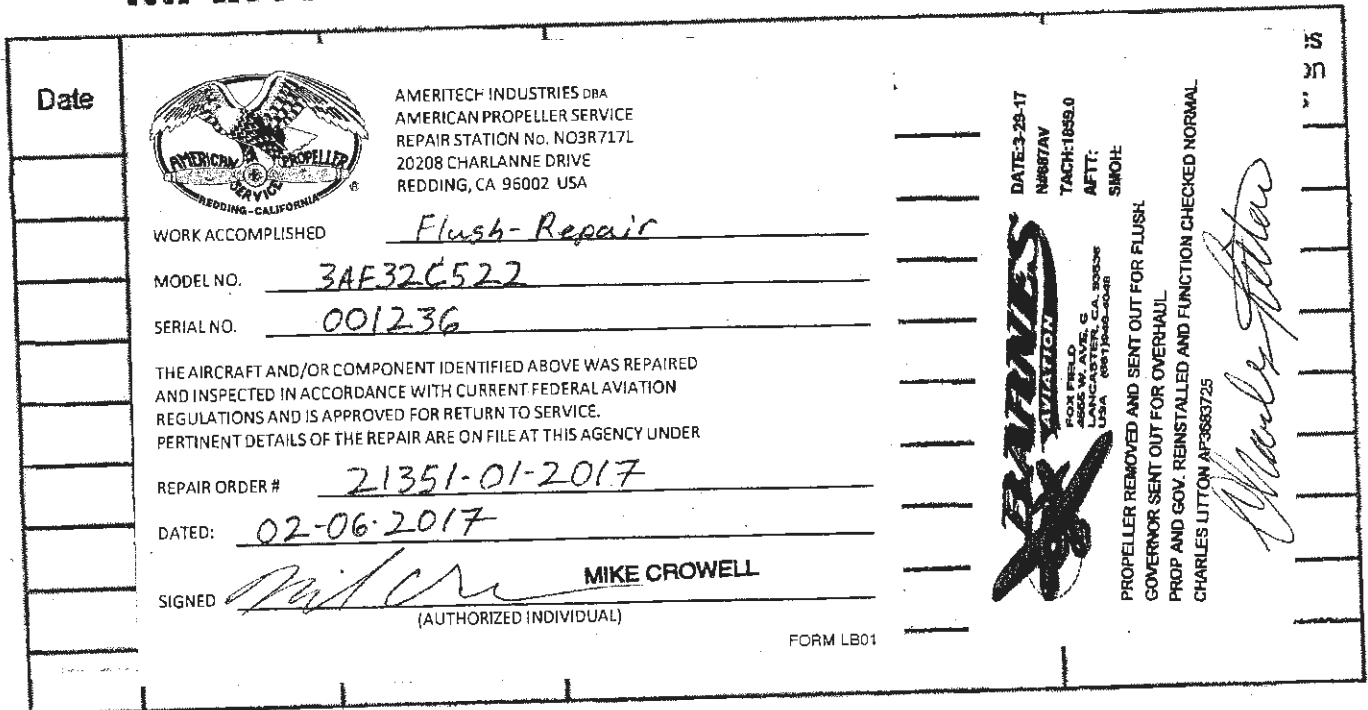 Date
AMERICAN PROPELLER
SERVICE
REDDING-CALIFORNIA
®
AMERITECH INDUSTRIES DBA
AMERICAN PROPELLER SERVICE
REPAIR STATION No. NO3R717L
20208 CHARLANNE DRIVE
REDDING, CA 96002 USA
WORK ACCOMPLISHED Flush-Repair
MODEL NO. 3AF32C522
SERIAL NO. 001236
THE AIRCRAFT AND/OR COMPONENT IDENTIFIED ABOVE WAS REPAIRED
AND INSPECTED IN ACCORDANCE WITH CURRENT FEDERAL AVIATION
REGULATIONS AND IS APPROVED FOR RETURN TO SERVICE.
PERTINENT DETAILS OF THE REPAIR ARE ON FILE AT THIS AGENCY UNDER
REPAIR ORDER # 21351-01-2017
DATED: 02-06-2017
SIGNED MIKE CROWELL
(AUTHORIZED INDIVIDUAL)
FORM LB01
BARNES
AVIATION
FOX FIELD
4555 W. AVE. G
LANCASTER, CA. 93536
USA
DATE:3-29-17
N#687AV
TACH:1859.0
AFTT:
SMOH:
PROPELLER REMOVED AND SENT OUT FOR FLUSH.
GOVERNOR SENT OUT FOR OVERHAUL.
PROP AND GOV. REINSTALLED AND FUNCTION CHECKED NORMAL
CHARLES LITTON AP3683725